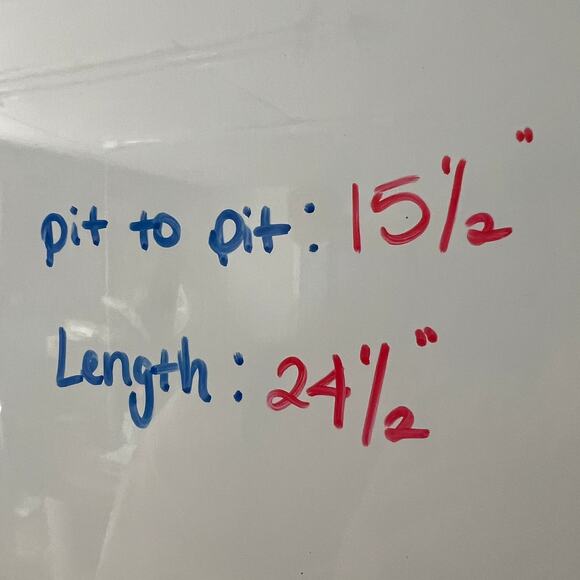 pit to pit: 15 1/2"
Length: 24 1/2"